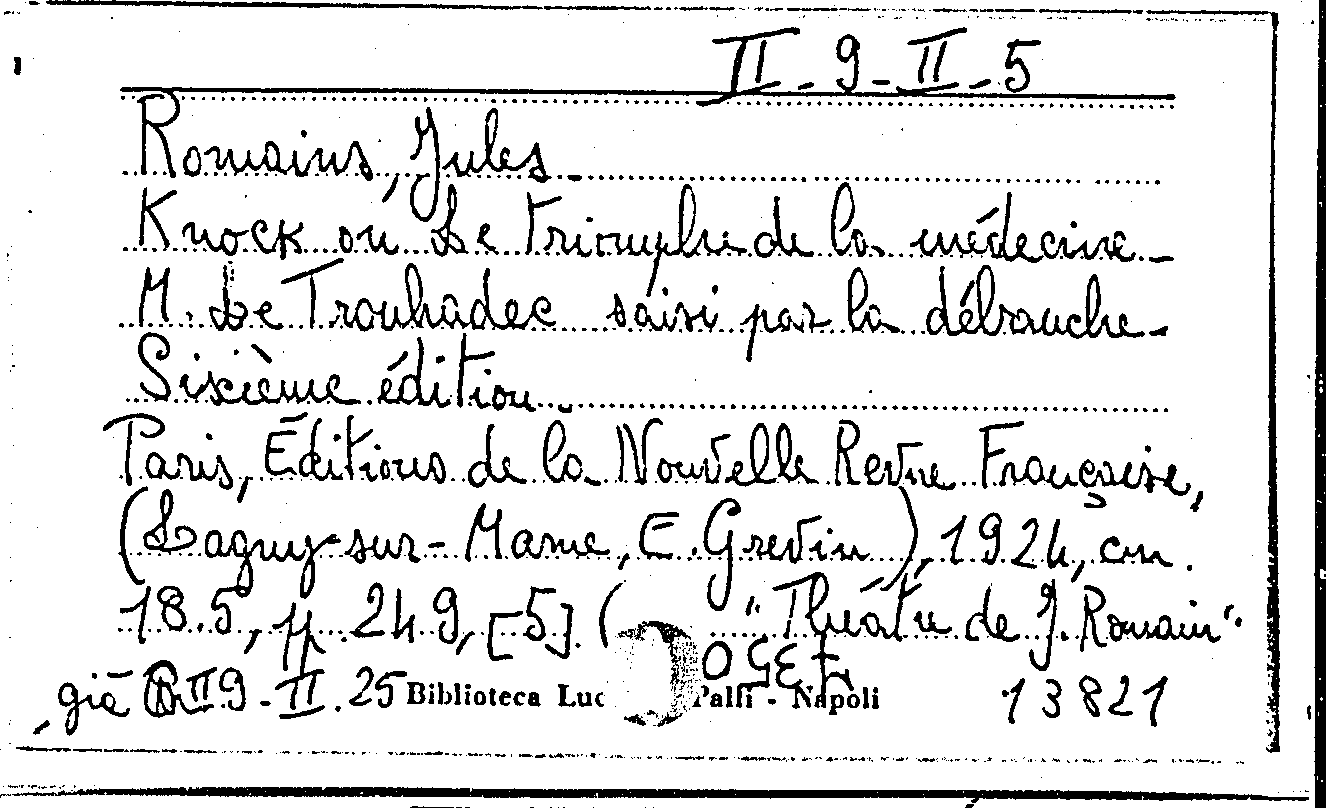 II - 9 - II - 5
Romains, Jules -
Knock ou Le triomphe de la médecine -
M. Le Trouhadec saisi par la débauche -
Sixième édition -
Paris, Éditions de la Nouvelle Revue Française,
(Lagny-sur-Marne, E. Grevin), 1924, cm.
18.5, p. 249, [5]. ( "Théâtre de J. Romain".
già II 9 - II . 25 Biblioteca Luc Palli - Napoli 13821